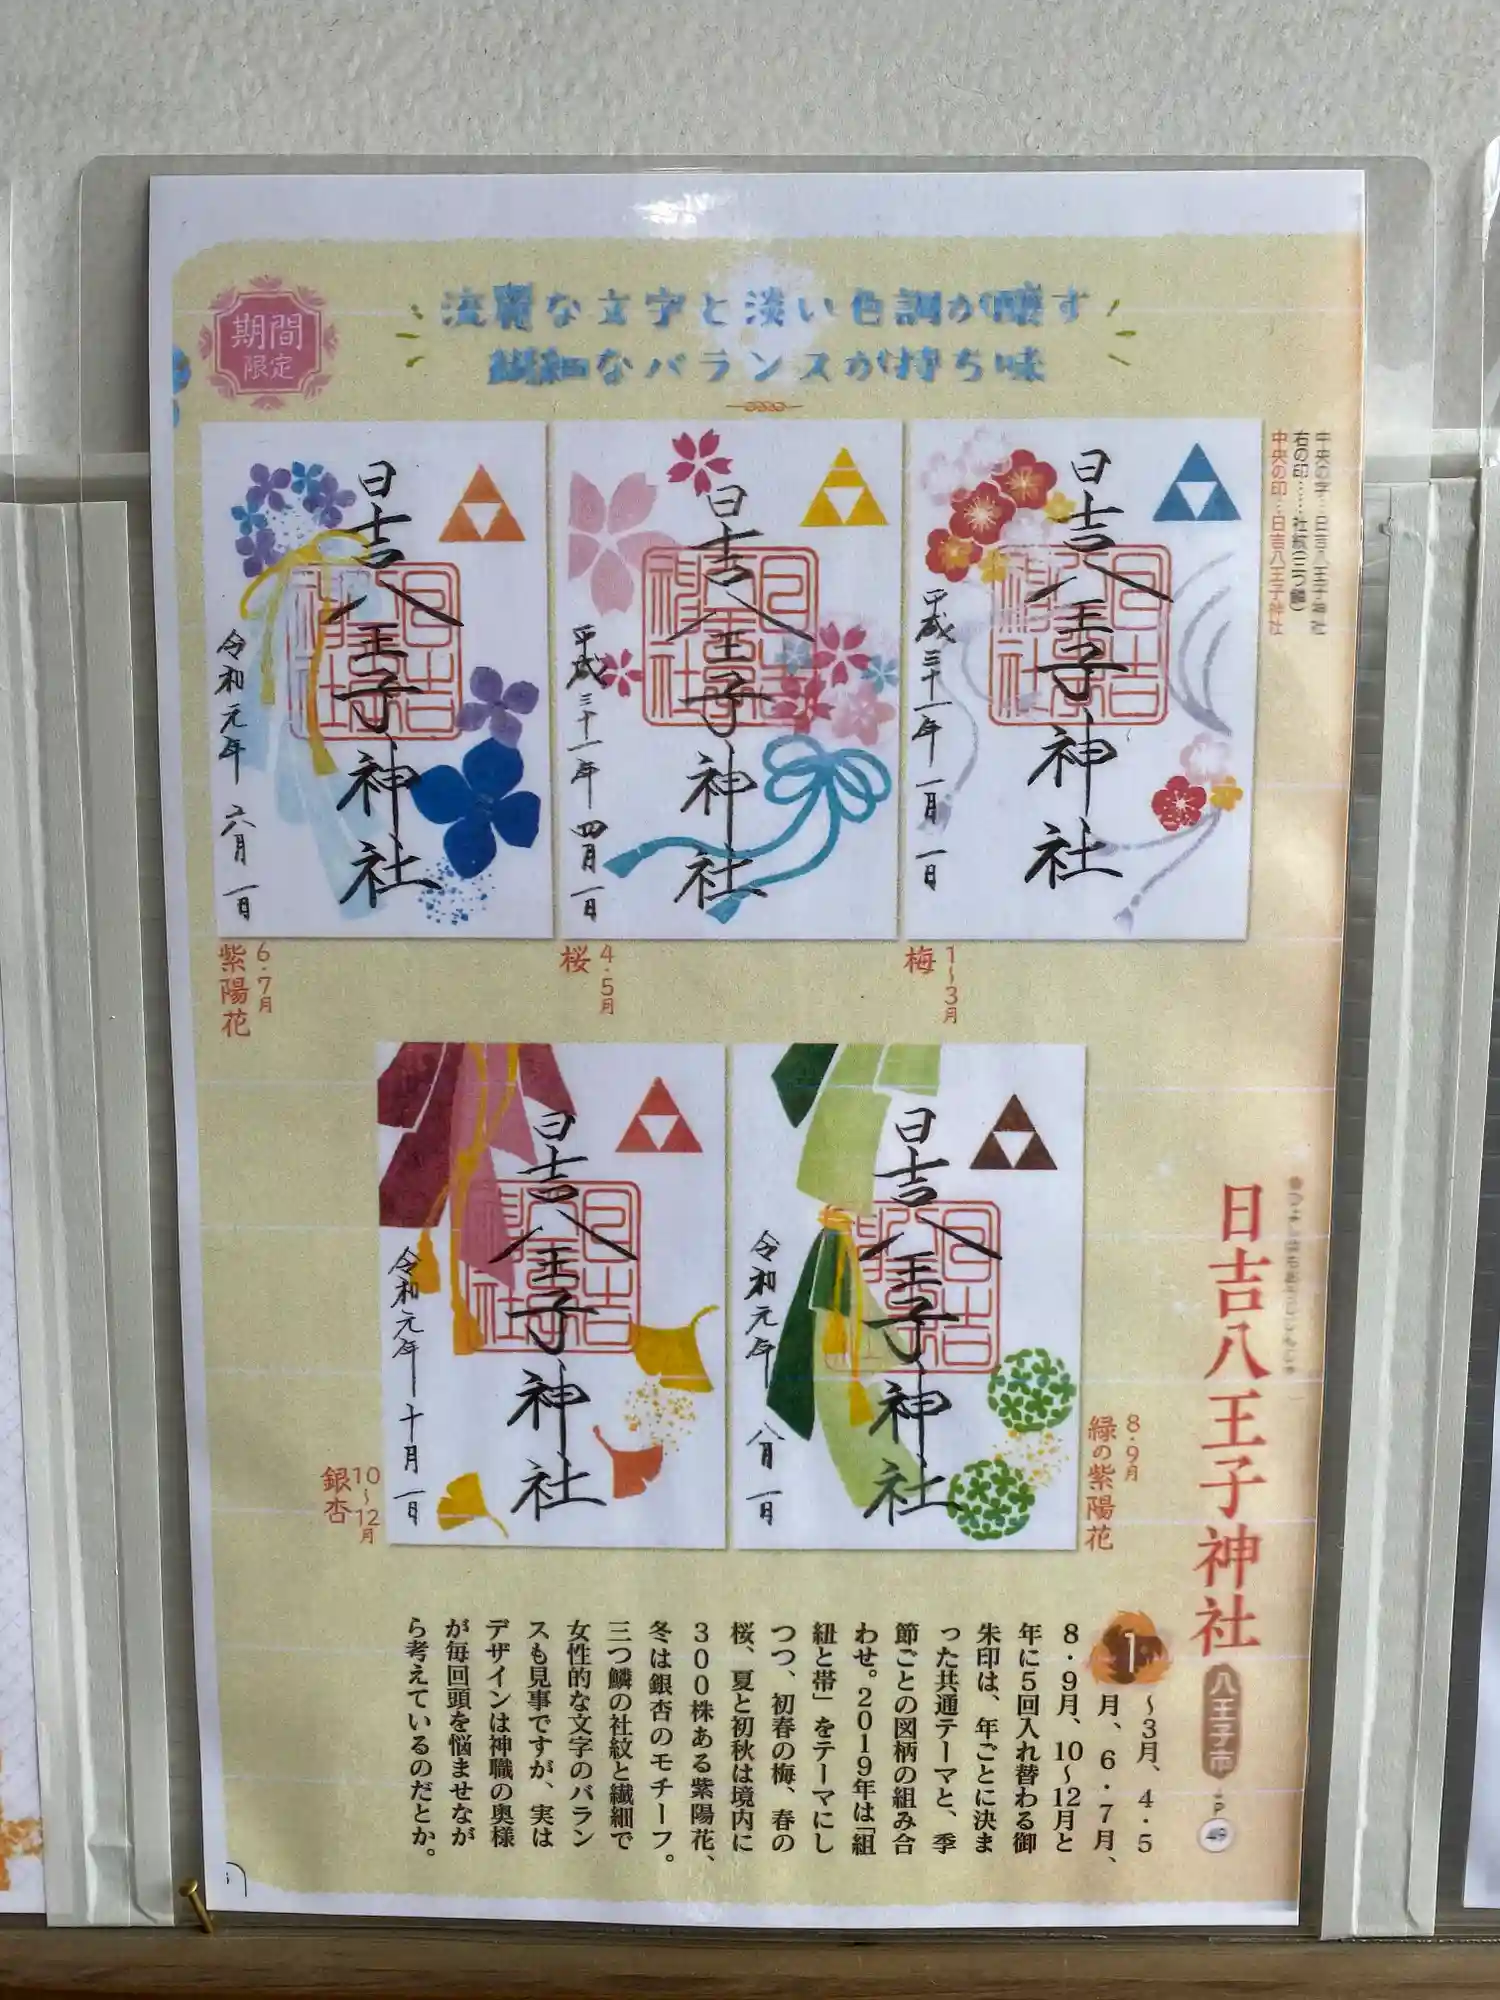 期間
限定
流麗な文字と淡い色調が醸す
繊細なバランスが持ち味
中央の字…日吉八王子神社
右の印……社紋(三つ鱗)
中央の印…日吉八王子神社
日吉八王子神社
平成三十一年一月一日
1〜3月
梅
日吉八王子神社
平成三十一年四月一日
4・5月
桜
日吉八王子神社
令和元年六月一日
6・7月
紫陽花
日吉八王子神社
令和元年八月一日
8・9月
緑の紫陽花
日吉八王子神社
令和元年十月一日
10〜12月
銀杏
日吉八王子神社
八王子市
P
1〜3月、4・5
月、6・7月、
8・9月、10〜12月と
年に5回入れ替わる御
朱印は、年ごとに決ま
った共通テーマと、季
節ごとの図柄の組み合
わせ。2019年は「組
紐と帯」をテーマにし
つつ、初春の梅、春の
桜、夏と初秋は境内に
300株ある紫陽花、
冬は銀杏のモチーフ。
三つ鱗の社紋と繊細で
女性的な文字のバラン
スも見事ですが、実は
デザインは神職の奥様
が毎回頭を悩ませなが
ら考えているのだとか。